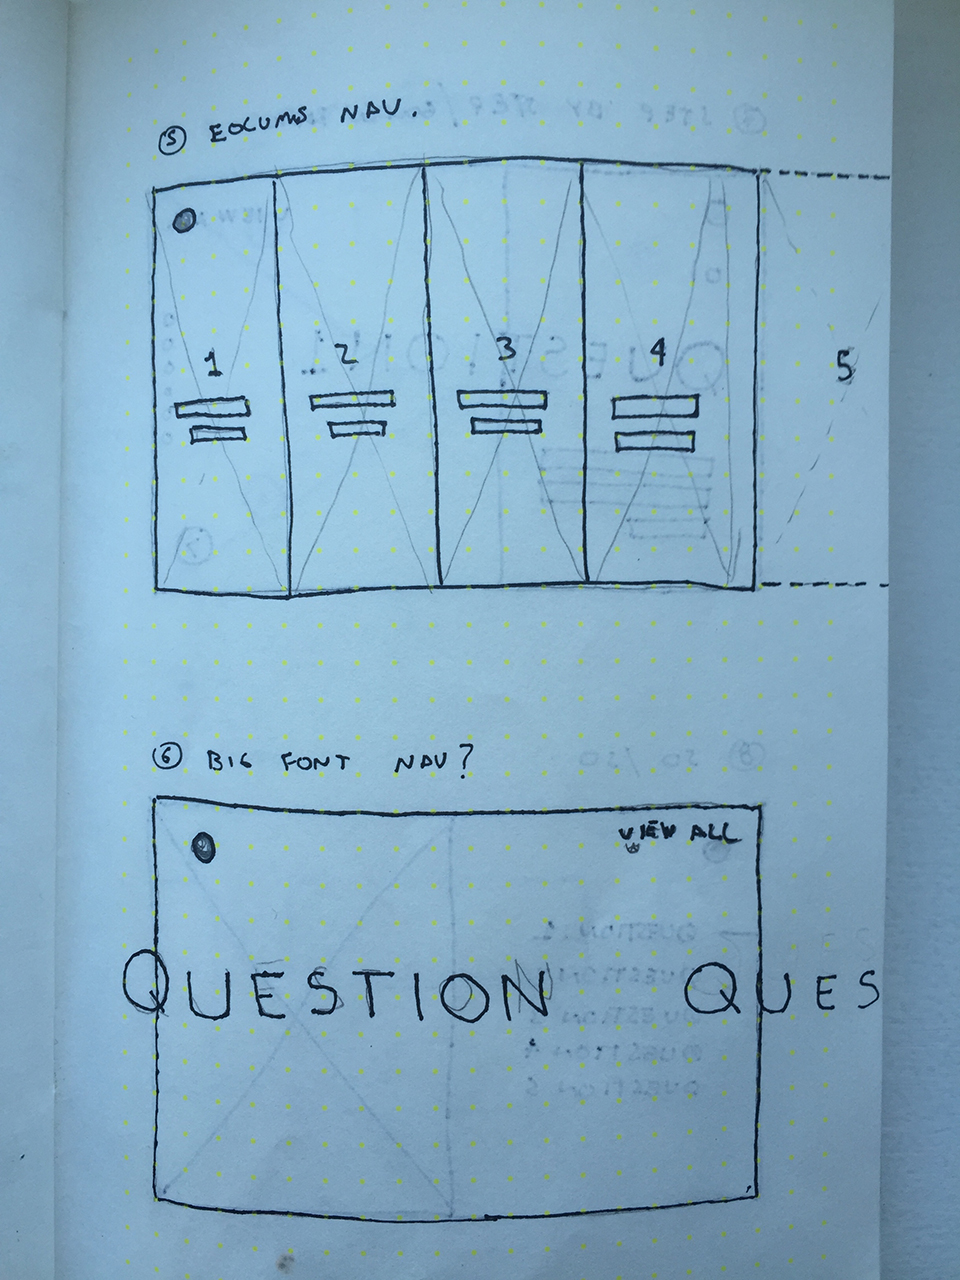 ⑤ EOLUMS NAV.
1 2 3 4 5
⑥ BIG FONT NAV?
VIEW ALL
QUESTION QUES